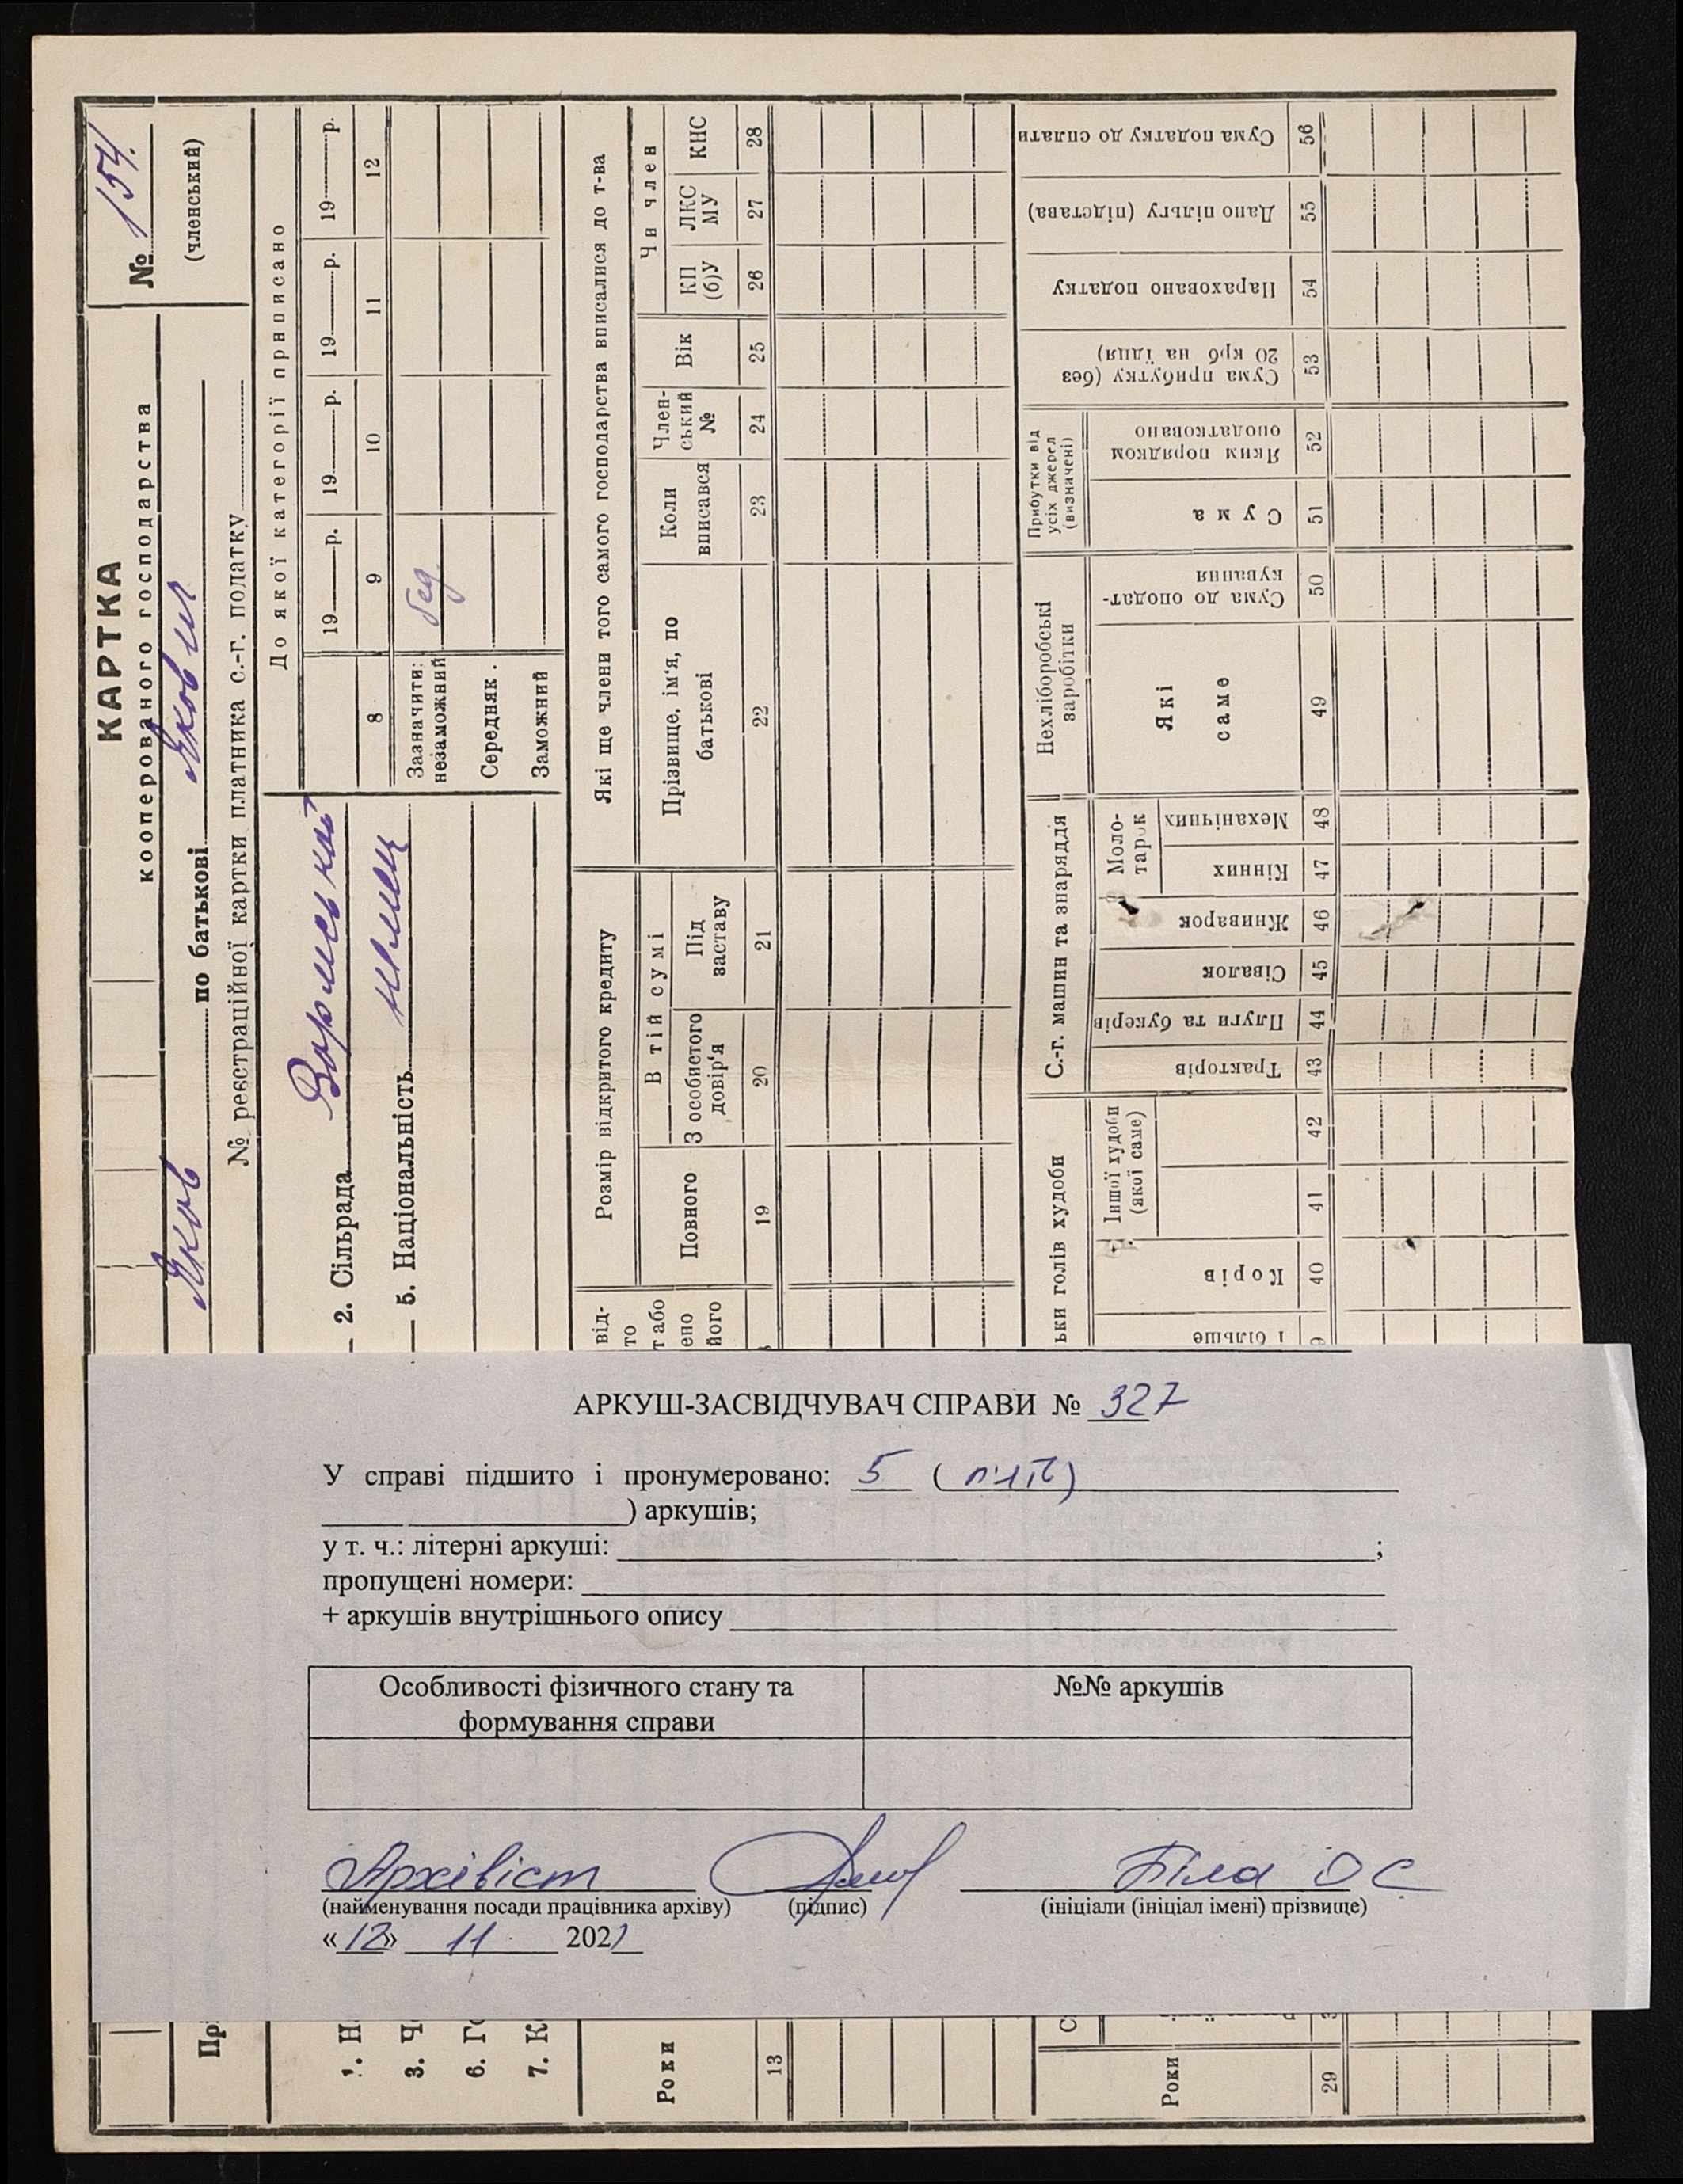 КАРТКА
кооперованого господарства
№ 154.
(членський)
Яков по батькові Якович
№ реєстраційної картки платника с.-г. податку
2. Сільрада
5. Національність немец
До якої категорії приписано
19 р. 19 р. 19 р. 19 р.
8 9 10 11 12
Зазначити:
незаможний бед
Середняк .
Заможний
Розмір відкритого кредиту
Повного
В тій сумі
З особистого довір'я
Під заставу
19 20 21
Які ще члени того самого господарства вписалися до т-ва
Прізвище, ім'я, по батькові
Коли вписався
Член-
ський
№
Вік
Чи член
КП (б)У
ЛКС МУ
КНС
22 23 24 25 26 27 28
від-
то
т або
ено
його
ьки голів худоби
і більше
Корів
Іншої худоби
(якої саме)
40 41 42
С.-г. машин та знаряддя
Тракторів
Плуги та букерів
Сівалок
Жниварок
Моло-
тарок
Кінних
Механічних
43 44 45 46 47 48
Нехліборобські
заробітки
Які
саме
Сума до оподат-
кування
49 50
Прибутки від
усіх джерел
(визначені)
Сума
Яким порядком
оподатковано
51 52
Сума прибутку (без
20 крб на їдця)
Нараховано податку
Дано пільгу (підстава)
Сума податку до сплати
53 54 55 56
АРКУШ-ЗАСВІДЧУВАЧ СПРАВИ № 327
У справі підшито і пронумеровано: 5 ( п'ять)
) аркушів;
у т. ч.: літерні аркуші: ;
пропущені номери:
+ аркушів внутрішнього опису
Особливості фізичного стану та
формування справи
№№ аркушів
Архівіст Біла О С
(найменування посади працівника архіву) (підпис) (ініціали (ініціал імені) прізвище)
«12» 11 2021
Пр
1. Н
3. Ч
6. Г
7. К
Роки
13
Роки
29